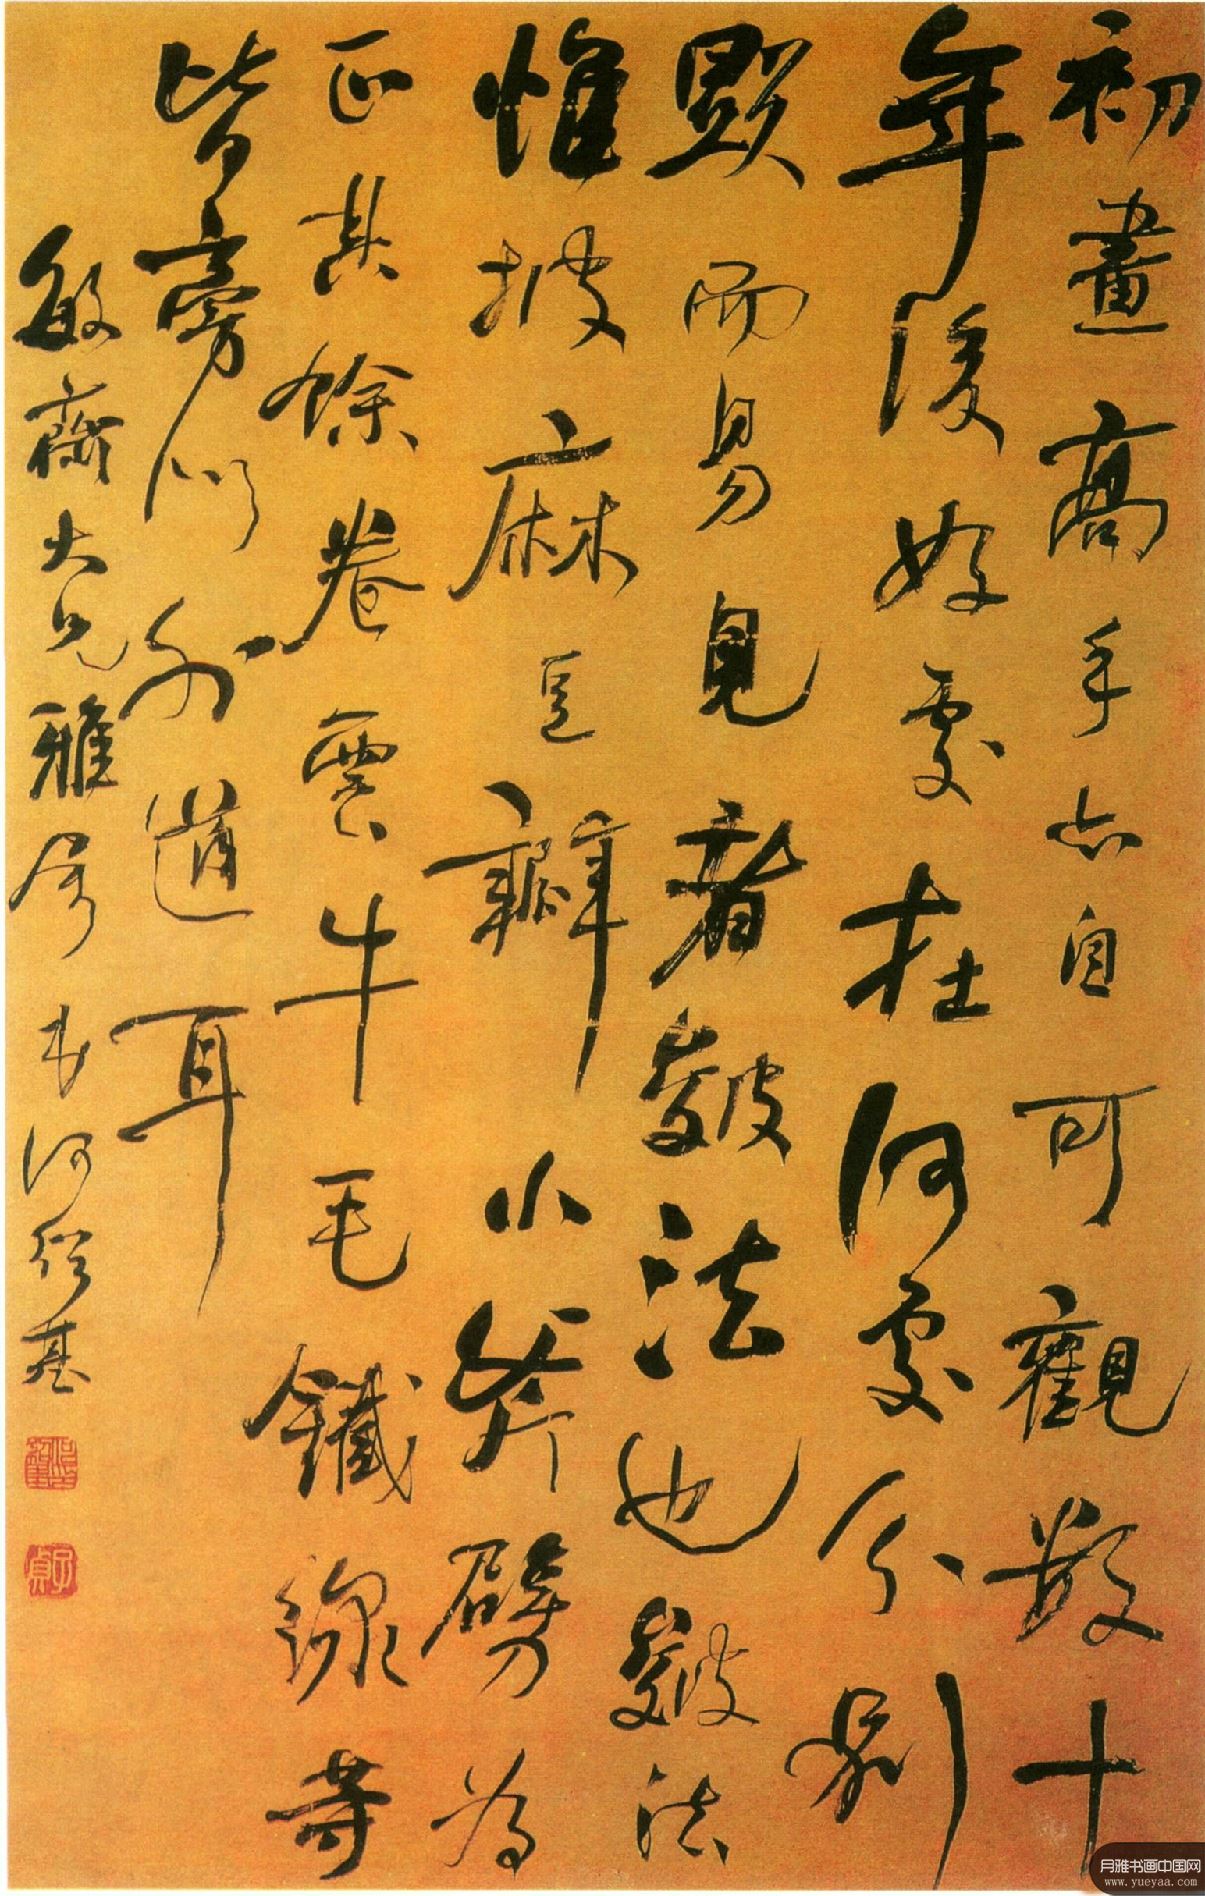 初畫高手亦自可觀數十
年後好處在何處分別
顯而易見者皴法也皴法
惟披麻豆瓣小斧劈為
正其餘卷雲牛毛鐵線等
皆旁門外道耳
敏齋大兄雅屬書何紹基
何紹基
子貞
月雅书画中国网
www.yueyaa.com